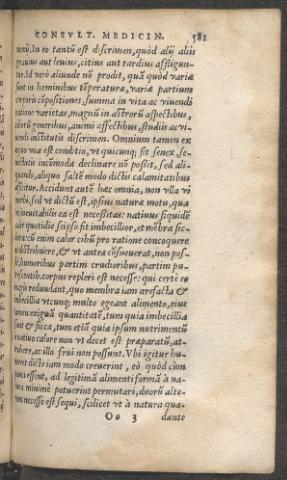 CONSVLT. MEDICIN. 581
noxū. In eo tantū est discrimen, quòd alij aliis
grauius aut leuius, citius aut tardius affligun-
tur. Id verò aliunde nō prodit, quā quòd variæ
sunt in hominibus tēperaturæ, variæ partium
corporū cōpositiones, summa in vita ac viuendi
ratione varietas, magnū in astrorū aspectibus,
locorū generibus, animi affectibus, studiis ac vi-
uendi institutis discrimen. Omnium tamen ex
æquo ma est conditio, vt quicunq; sit senex, se-
nectutis incōmoda declinare nō possit, sed ali-
quando, aliquo saltē modo dictis calamitatibus
Accidunt autē hæc omnia, non vlla vi
sed vt dictū est, ipsius naturæ motu, qua
ineuitabilis ea est necessitas: natiuus siquidē
calor quotidie seipso fit imbecillior, et mēbra sic-
enim calor cibū pro ratione concoquere
distribuere, & vt antea cōsueuerat, non pos-
humoribus partim crudioribus, partim pu-
corpus repleri est necesse: qui certè eo
magis redundant, quo membra iam arefacta &
imbecillia vtcunq; multo egeant alimento, eius
exiguā quantitatē, tum quia imbecillia
sunt & sicca, tum etiā quia ipsum nutrimentū
natiuo calore non vt decet est præparatū, at-
trahere, ac illo frui non possunt. Vbi igitur hu-
mores dicto iam modo creuerint, eò quòd cùm
essent, ad legitimā alimenti formā à na-
tura minimè potuerint permutari, duorū alte-
rum necesse est sequi, scilicet vt à natura qua-
Oo 3 dante